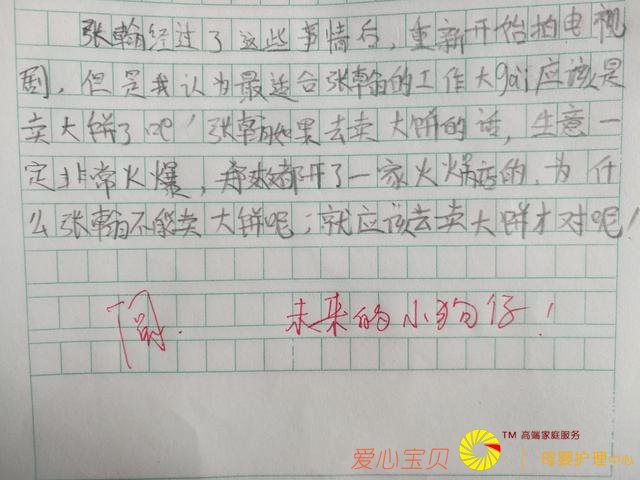 张翰经过了这些事情后，重新开始拍电视
剧，但是我认为最适合张翰的工作大gai应该是
卖大饼了吧！张翰如果去卖大饼的话，生意一
定非常火爆，郑爽都开了一家火锅店的，为什
么张翰不能卖大饼呢；就应该去卖大饼才对呢！
阅. 未来的小狗仔！
爱心宝贝 TM 高端家庭服务
母婴护理中心